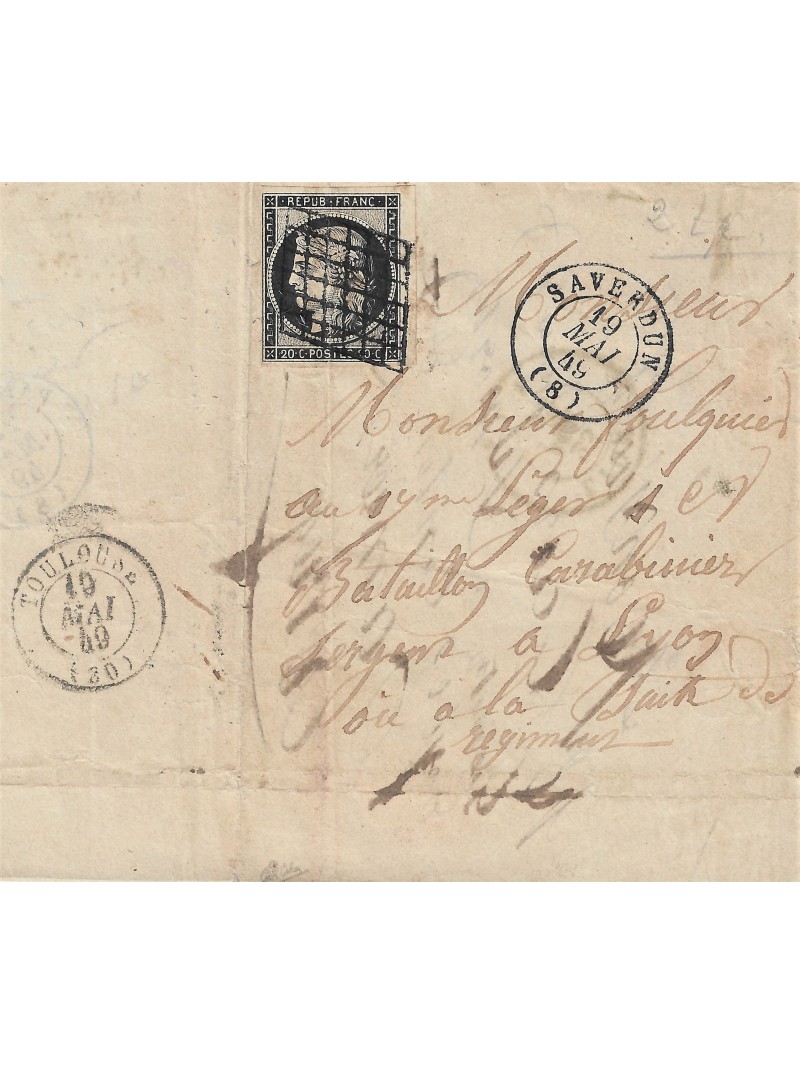 REPUB · FRANC ·
20 · C · POSTES 20 C
SAVERDUN
19
MAI
49
(8)
Monsieur
Monsieur foulquier
au 17me Léger
Bataillon Carabinier
sergent a Lyon
ou a la Suite du
regiment
TOULOUSE
19
MAI
49
(30)